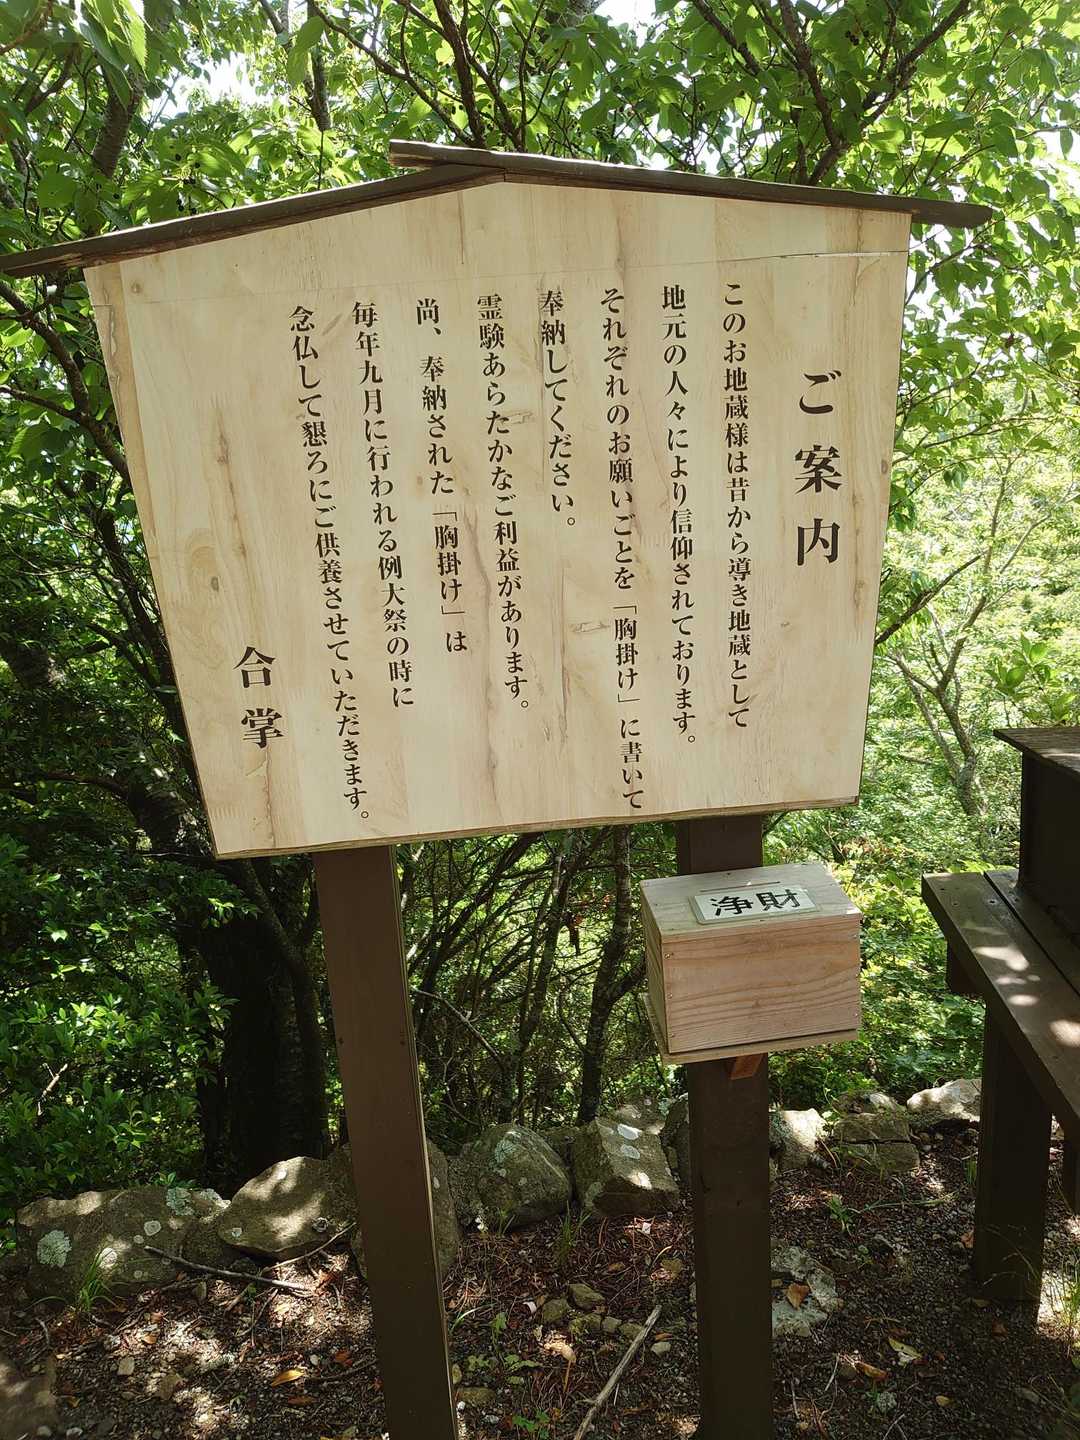 ご案内
このお地蔵様は昔から導き地蔵として
地元の人々により信仰されております。
それぞれのお願いごとを「胸掛け」に書いて
奉納してください。
霊験あらたかなご利益があります。
尚、奉納された「胸掛け」は
毎年九月に行われる例大祭の時に
念仏して懇ろにご供養させていただきます。
合掌
浄財